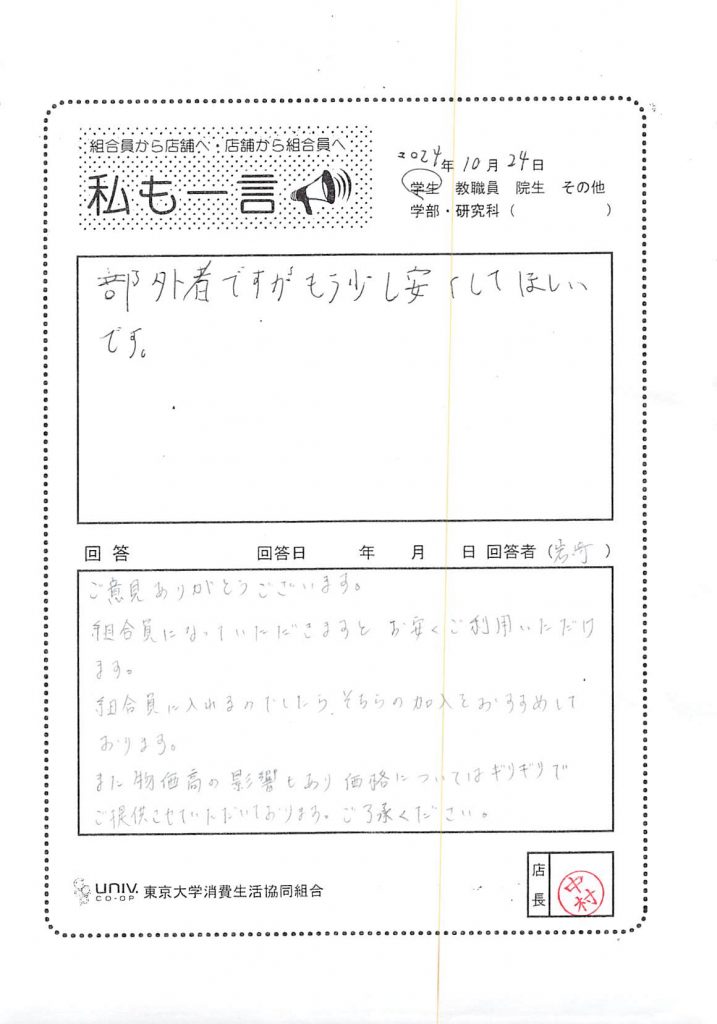 組合員から店舗へ・店舗から組合員へ
私も一言
2024年10月24日
学生 教職員 院生 その他
学部・研究科（ ）
部外者ですがもう少し安くしてほしい
です。
回答 回答日 年 月 日 回答者（ ）
ご意見ありがとうございます。
組合員になっていただきますと お安くご利用いただけ
ます。
組合員に入れるのでしたら、そちらの加入をおすすめして
おります。
また物価高の影響もあり価格についてはギリギリで
ご提供させていただいております。ご了承ください。
UNIV. CO-OP 東京大学消費生活協同組合
店長 中村